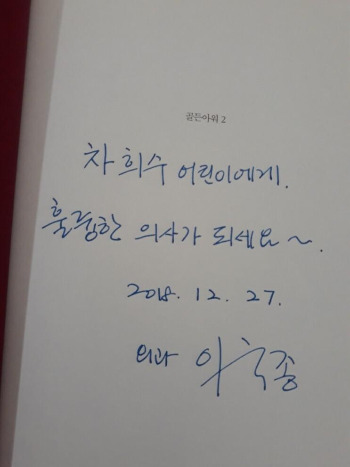 골든아워 2
차희수 어린이에게.
훌륭한 의사가 되세요~.
2018. 12. 27.
외과 이국종